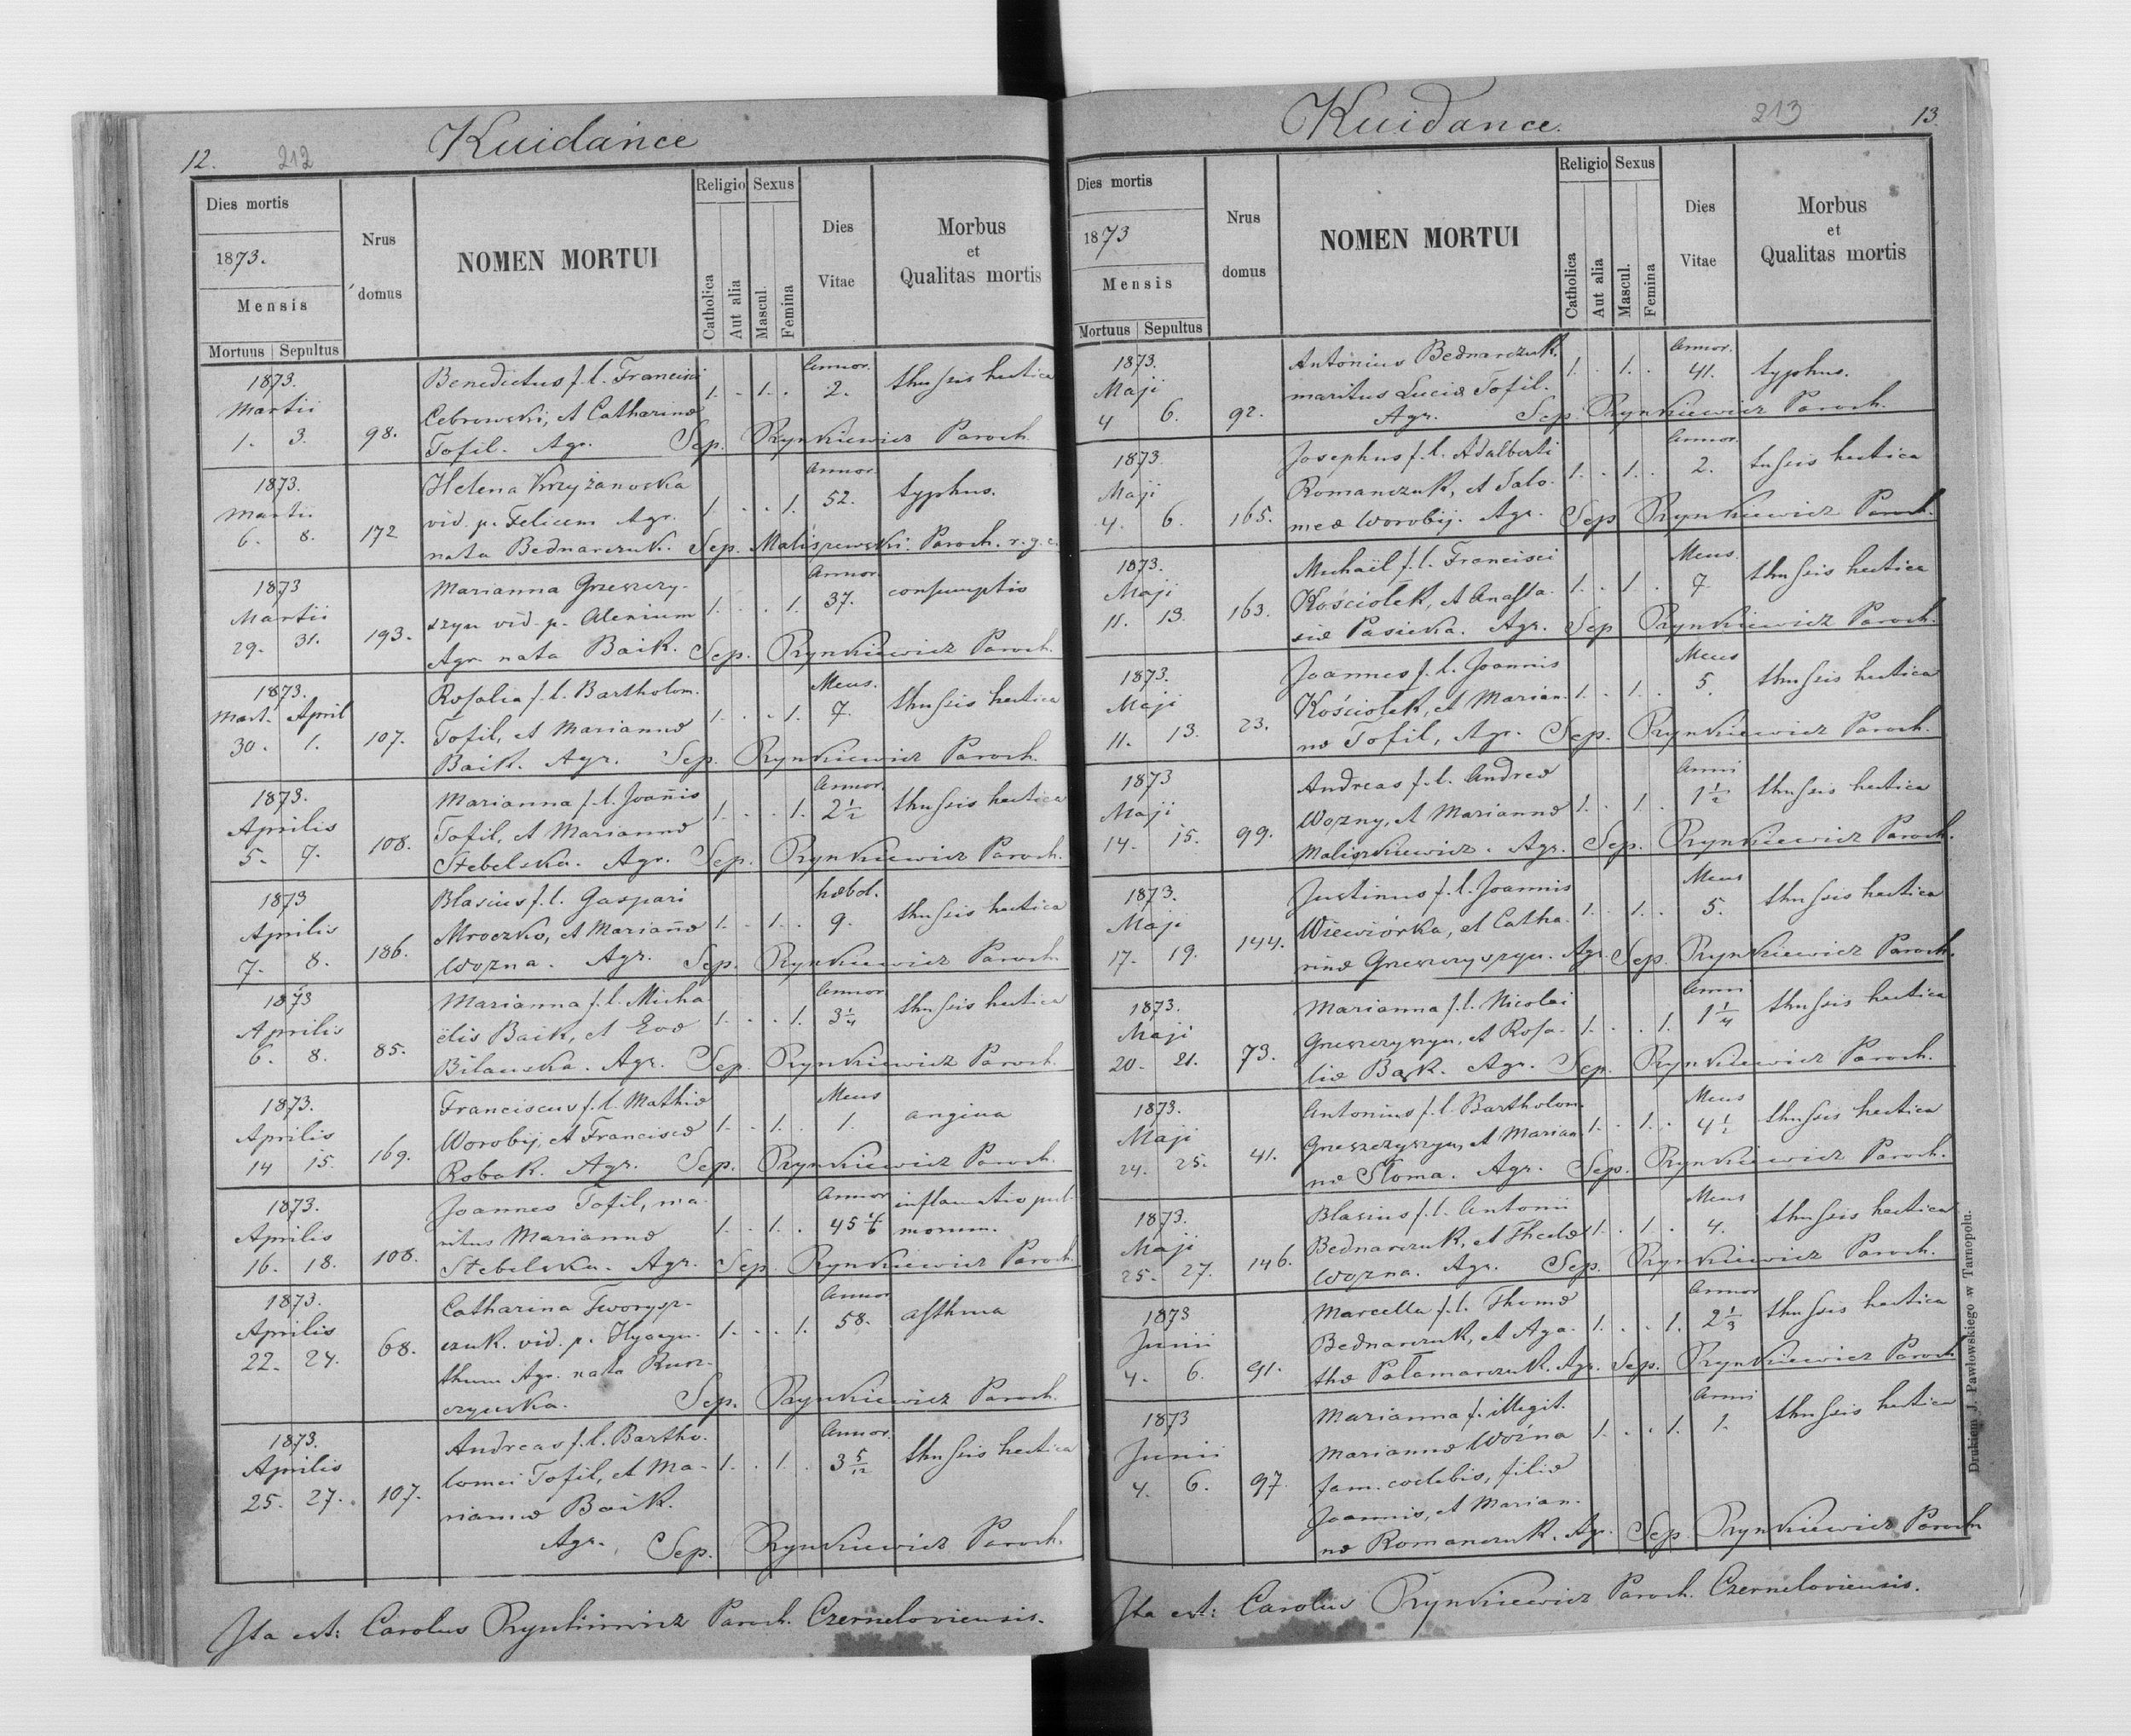 12.
212
Kuidance
Dies mortis
1873.
Mensis
Mortuus Sepultus
Nrus
domus
NOMEN MORTUI
Religio
Catholica
Aut alia
Sexus
Mascul.
Femina
Dies
Vitae
Morbus
et
Qualitas mortis
1873.
Martii
1. 3. 98.
Benedictus f. l. Francisci
Cebrowski, et Catharinæ
Tofil. Agr. Sep. Rynkiewicz Paroch.
1. . 1. . Annor. 2. thussis hectica
1873.
Martii
6. 8. 172
Helena Krzyżanowska
vid. p. Felicem Agr.
nata Bednarczuk. Sep. Maliszewski. Paroch. r. g. c.
1. . . 1. Annor. 52. typhus.
1873
Martii
29. 31. 193.
Marianna Grzeszczy-
szyn vid. p. Alexium
Agr. nata Baik. Sep. Rynkiewicz Paroch.
1. . . 1. Annor. 37. consumptio
1873.
Mart. April
30. 1. 107.
Rosalia f. l. Bartholom.
Tofil, et Mariannæ
Baik. Agr. Sep. Rynkiewicz Paroch.
1. . . 1. Mens. 7. thussis hectica
1873.
Aprilis
5. 7. 108.
Marianna f. l. Joañis
Tofil, et Mariannæ
Stebelska. Agr. Sep. Rynkiewicz Paroch.
1. . . 1. Annor. 2 1/2 thussis hectica
1873
Aprilis
7. 8. 186.
Blasius f. l. Gaspari
Mroczko, et Mariañæ
Wozna. Agr. Sep. Rynkiewicz Paroch.
1. . 1. . hebd. 9. thussis hectica
1873
Aprilis
6. 8. 85.
Marianna f. l. Micha
ëlis Baik, et Evæ
Bilanska. Agr. Sep. Rynkiewicz Paroch.
1. . . 1. Annor. 3 1/4 thussis hectica
1873.
Aprilis
14 15. 169.
Franciscus f. l. Mathiæ
Worobij, et Franciscæ
Robak. Agr. Sep. Rynkiewicz Paroch.
1. . 1. . Mens 1. angina
1873.
Aprilis
16. 18. 108.
Joannes Tofil, ma-
ritus Mariannæ
Stebelska. Agr. Sep. Rynkiewicz Paroch.
1. . 1. . Annor 45 1/6 inflamatio pul-
monum.
1873.
Aprilis
22. 24. 68.
Catharina Tworysz-
czuk. vid. p. Hyacyn-
thum Agr. nata
Sep. Rynkiewicz Paroch.
1. . . 1. Annor 58. asthma
1873.
Aprilis
25. 27. 107.
Andreas f. l. Bartho-
lomei Tofil, et Ma-
riannæ Baik.
Agr. Sep. Rynkiewicz Paroch.
1. . 1. . Annor. 3 5/12 thussis hectica
Ita est: Carolus Rynkiewicz Paroch. Czerneloviensis.
Kuidance.
213
13.
Dies mortis
1873
Mensis
Mortuus Sepultus
Nrus
domus
NOMEN MORTUI
Religio
Catholica
Aut alia
Sexus
Mascul.
Femina
Dies
Vitae
Morbus
et
Qualitas mortis
1873.
Maji
4 6. 92.
Antonius Bednarczuk.
maritus Luciæ Tofil.
Agr. Sep. Rynkiewicz Paroch.
1. . 1. . Annor. 41. typhus.
1873.
Maji
4. 6. 165.
Josephus f. l. Adalberti
Romanczuk, et Salo-
meæ Worobij. Agr. Sep Rynkiewicz Paroch.
1. . 1. . Annor. 2. tussis hectica
1873.
Maji
11. 13. 163.
Michaël f. l. Francisci
Kościołek, et Anasta-
siæ Pasieka. Agr. Sep Rynkiewicz Paroch.
1. . 1. . Mens. 7. thussis hectica
1873.
Maji
11. 13. 23.
Joannes f. l. Joannis
Kościołek, et Marian-
næ Tofil, Agr. Sep. Rynkiewicz Paroch.
1. . 1. . Mens 5. thussis hectica
1873
Maji
14. 15. 99.
Andreas f. l. Andreæ
Wozny, et Mariannæ
Maliszkiewicz. Agr. Sep. Rynkiewicz Paroch.
1. . 1. . Anni 1 1/2 thussis hectica
1873.
Maji
17. 19. 144.
Justinus f. l. Joannis
Wiewiórka, et Catha-
rinæ Grzeszczyszyn. Agr. Sep. Rynkiewicz Paroch.
1. . 1. . Mens 5. thussis hectica
1873.
Maji
20. 21. 73.
Marianna f. l. Nicolai
Grzeszczyszyn, et Rosa-
liæ Bąk. Agr. Sep. Rynkiewicz Paroch.
1. . . 1. Anni 1 1/4 thussis hectica
1873.
Maji
24. 25. 41.
Antonius f. l. Bartholom.
Grzeszczyszyn, et Marian-
næ Słoma. Agr. Sep. Rynkiewicz Paroch.
1. . 1. . Mens 4 1/2 thussis hectica
1873.
Maji
25. 27. 146.
Blasius f. l. Antonii
Bednarczuk, et Theclæ
Wozna. Agr. Sep. Rynkiewicz Paroch.
1. . 1. . Mens 4. thussis hectica
1873
Junii
4. 6. 91.
Marcella f. l. Thomæ
Bednarczuk, et Aga-
thæ Palamarczuk. Agr. Sep. Rynkiewicz Paroch.
1. . . 1. Annor 2 1/3 thussis hectica
1873
Junii
4. 6. 97.
Marianna f. illegit.
Mariannæ Woźna
fam. coelebis, filiæ
Joannis, et Marian-
næ Romanczuk. Agr. Sep. Rynkiewicz Paroch.
1. . . 1. Anni 1. thussis hectica
Ita est: Carolus Rynkiewicz Paroch. Czerneloviensis.
Drukiem J. Pawłowskiego w Tarnopolu.